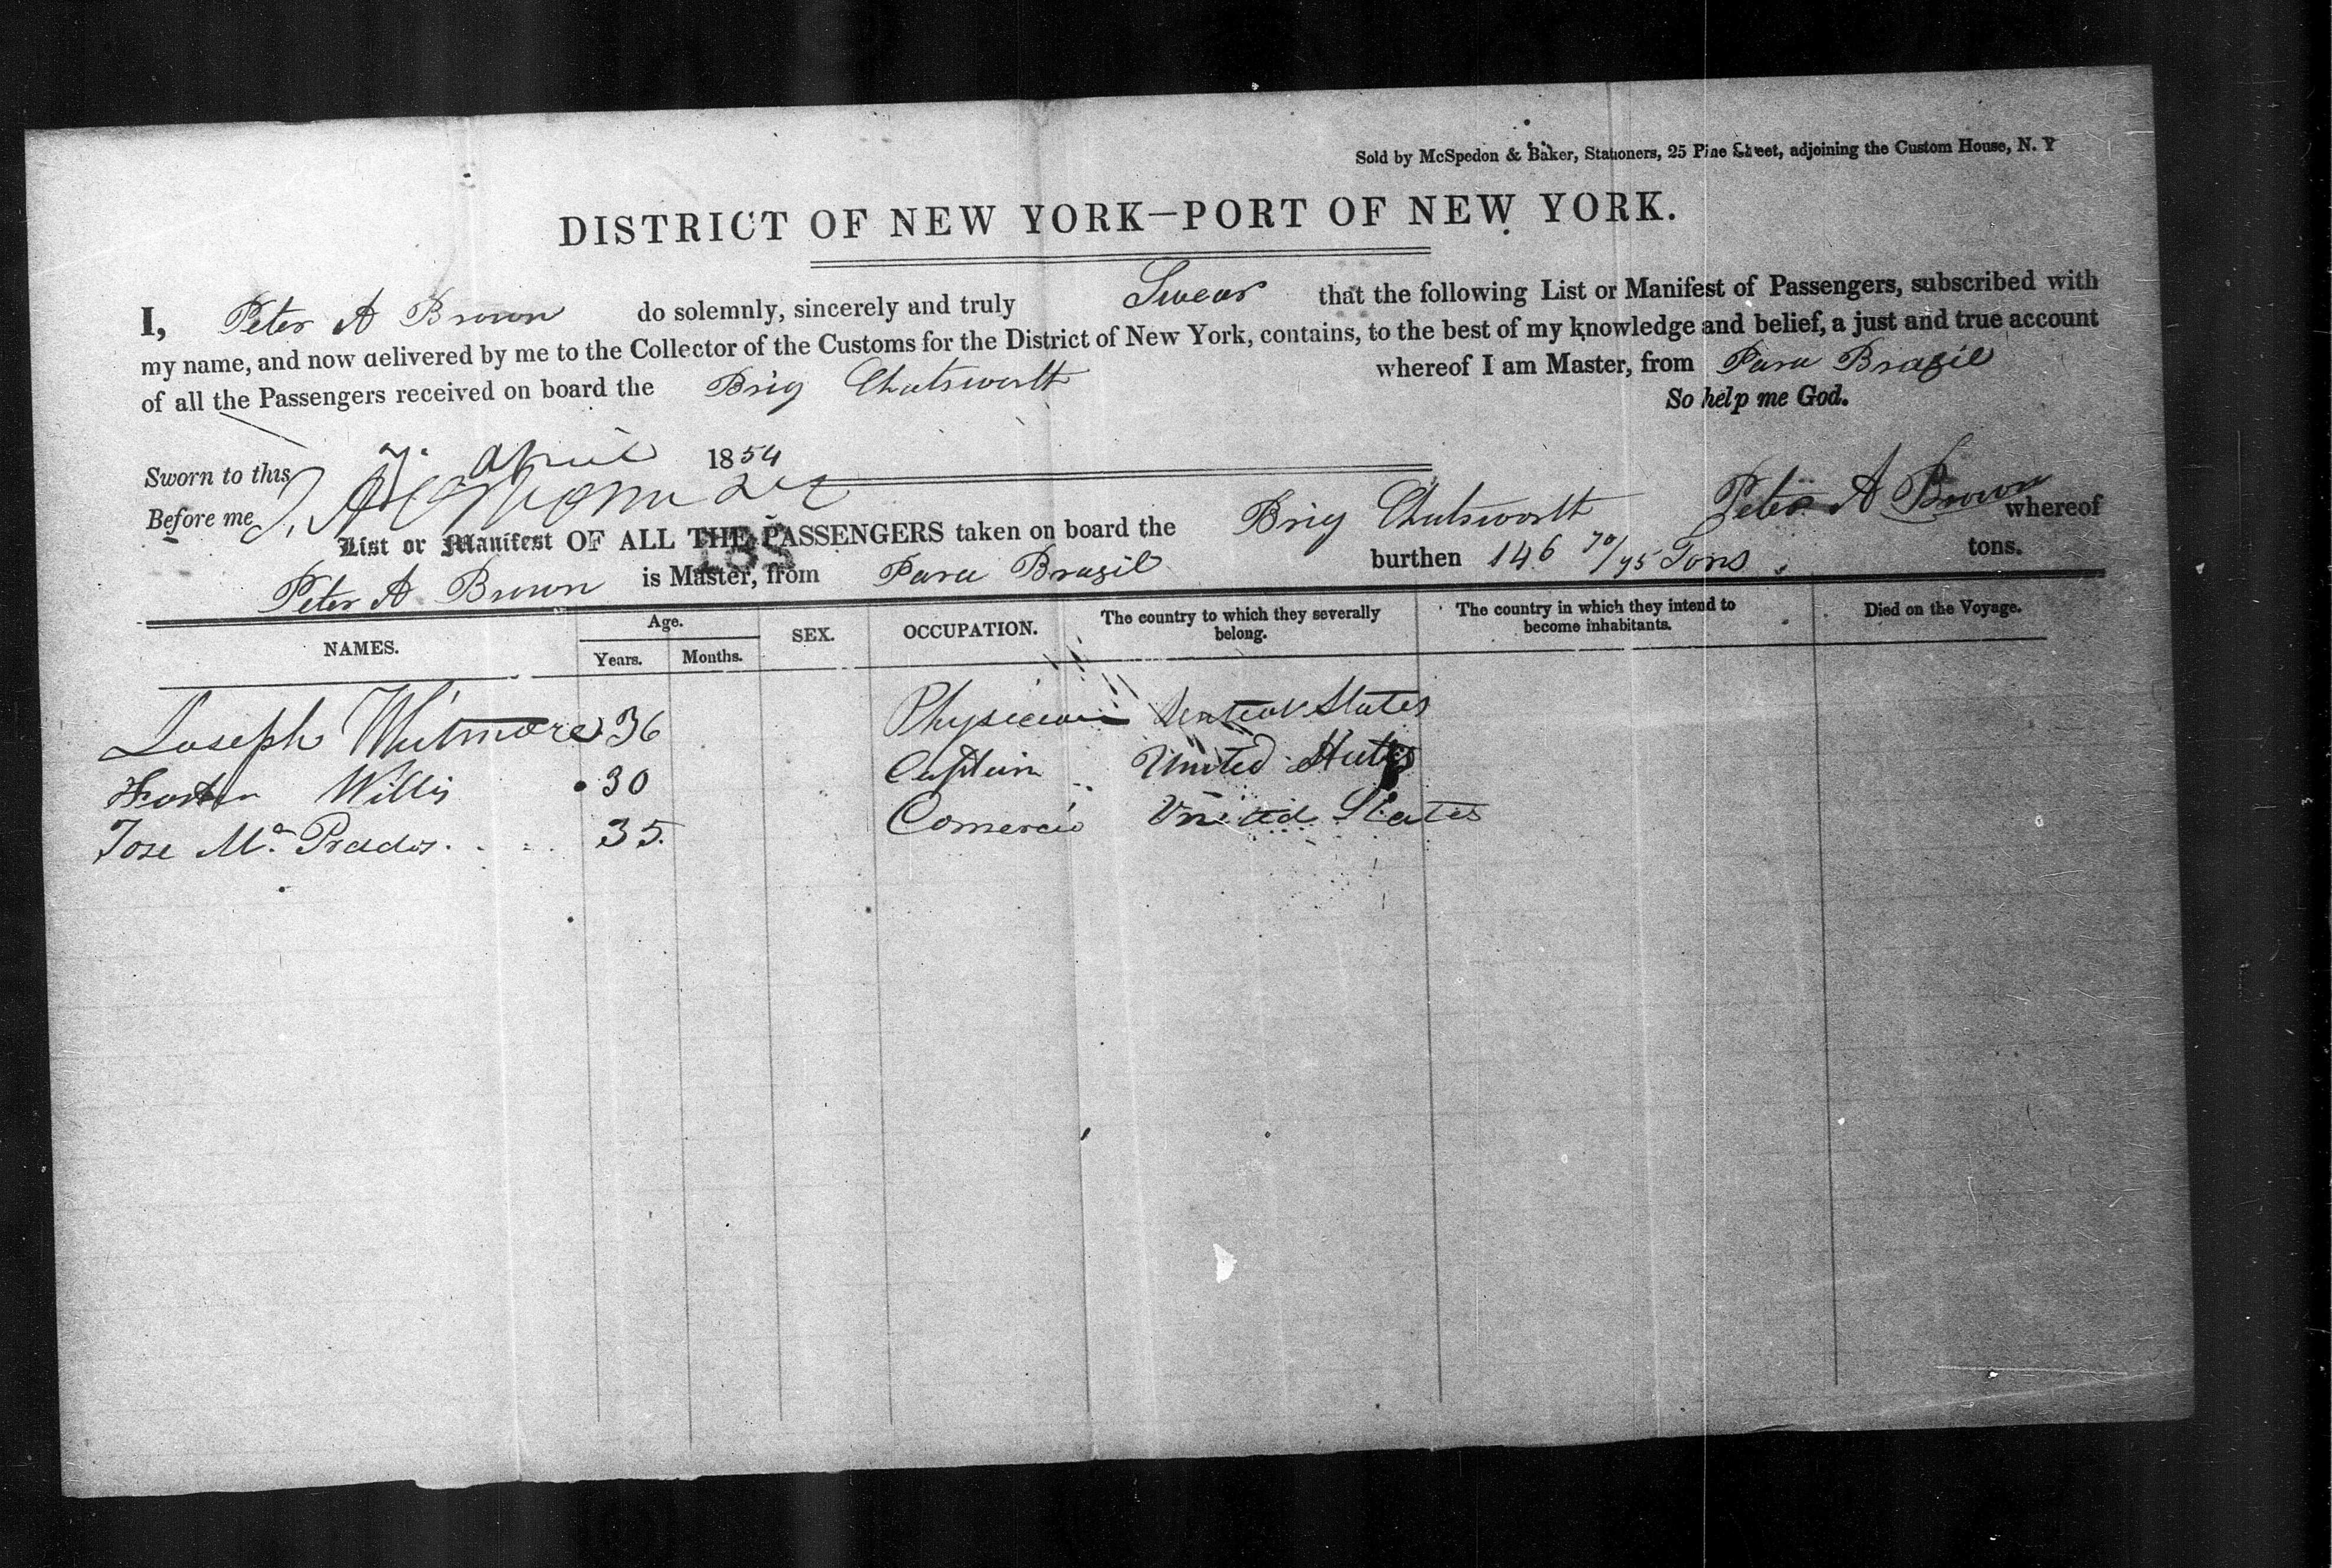 Sold by McSpedon & Baker, Stationers, 25 Pine Street, adjoining the Custom House, N. Y
DISTRICT OF NEW YORK—PORT OF NEW YORK.
I, Peter A Brown do solemnly, sincerely and truly Swear that the following List or Manifest of Passengers, subscribed with
my name, and now delivered by me to the Collector of the Customs for the District of New York, contains, to the best of my knowledge and belief, a just and true account
of all the Passengers received on board the Brig Chatsworth whereof I am Master, from Para Brazil
So help me God.
Sworn to this 7 April 1854
Before me
Peter A Brown
List or Manifest OF ALL THE PASSENGERS taken on board the Brig Chatsworth whereof
Peter A Brown is Master, from Para Brazil burthen 146 70/95 Tons tons.
NAMES. Age. Years. Months. SEX. OCCUPATION. The country to which they severally belong. The country in which they intend to become inhabitants. Died on the Voyage.
Joseph Whitmore 36 Physician United States
Willis 30 Captain United States
Jose Ma. Prados. 35. Comercio United States